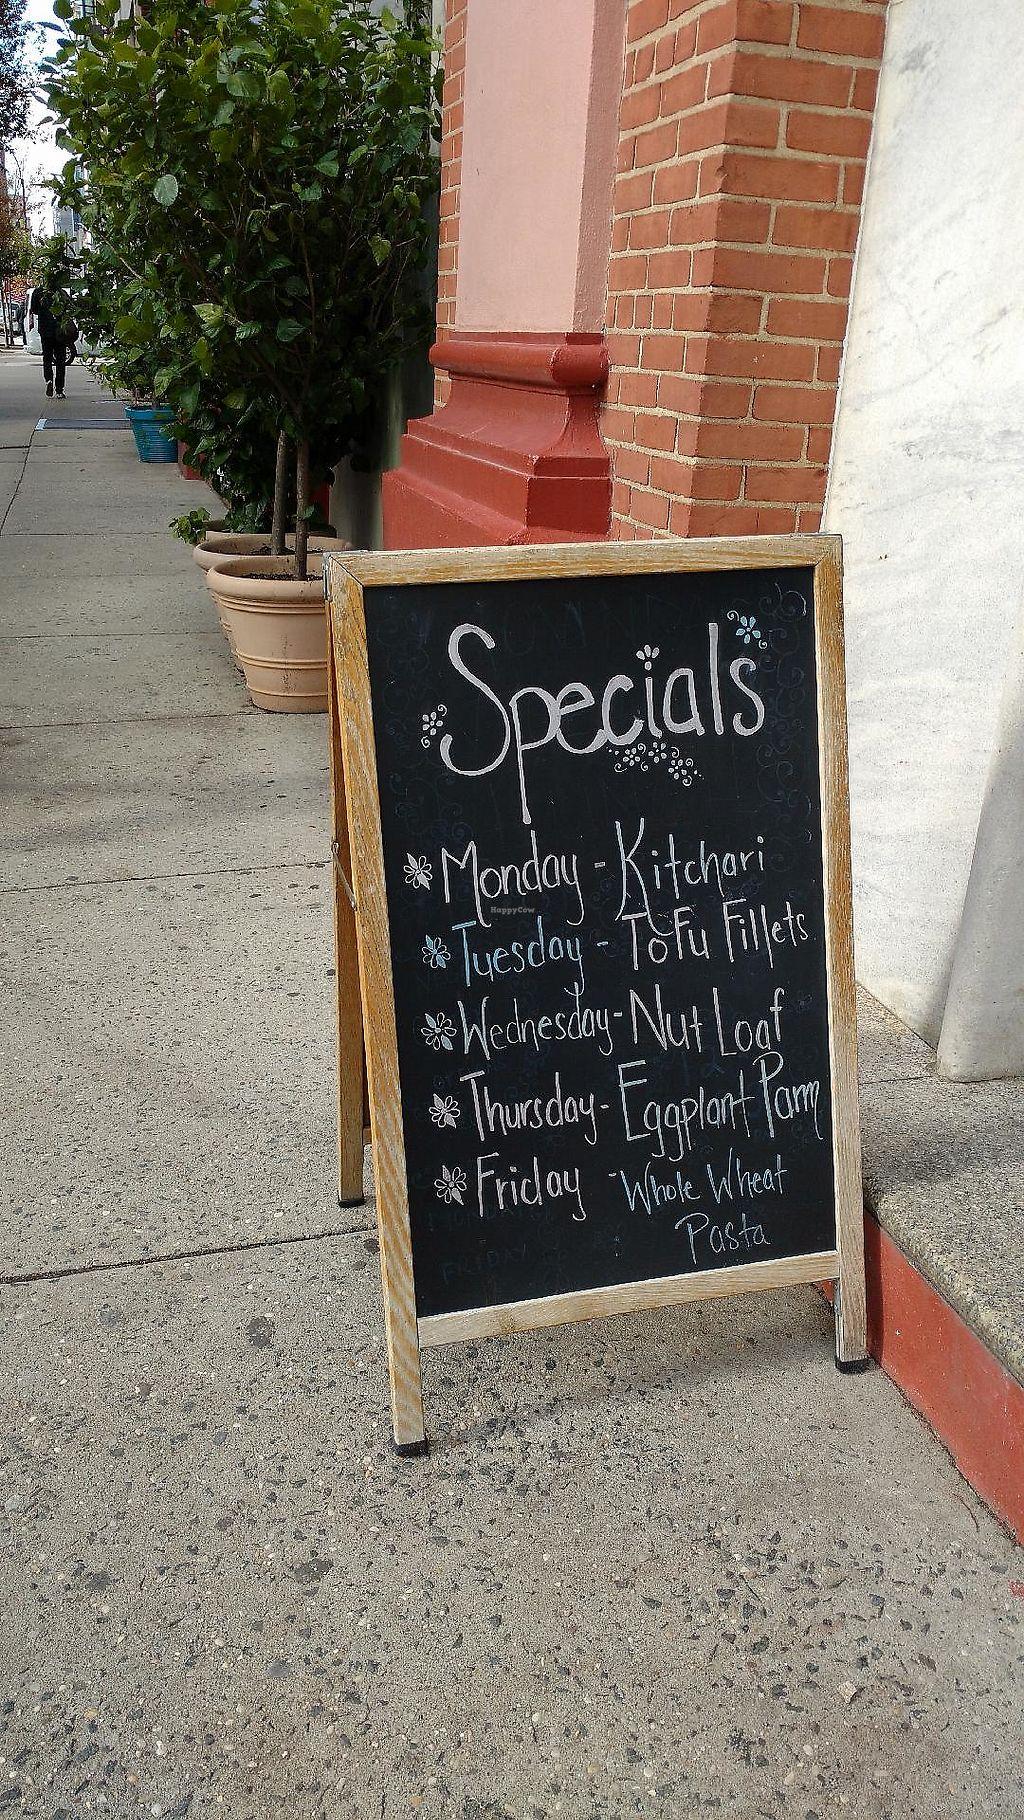 Specials
Monday - Kitchari
HappyCow
Tuesday - ToFu Fillets
Wednesday - Nut Loaf
Thursday - Eggplant Parm
Friday - Whole Wheat
Pasta
FRIDAY